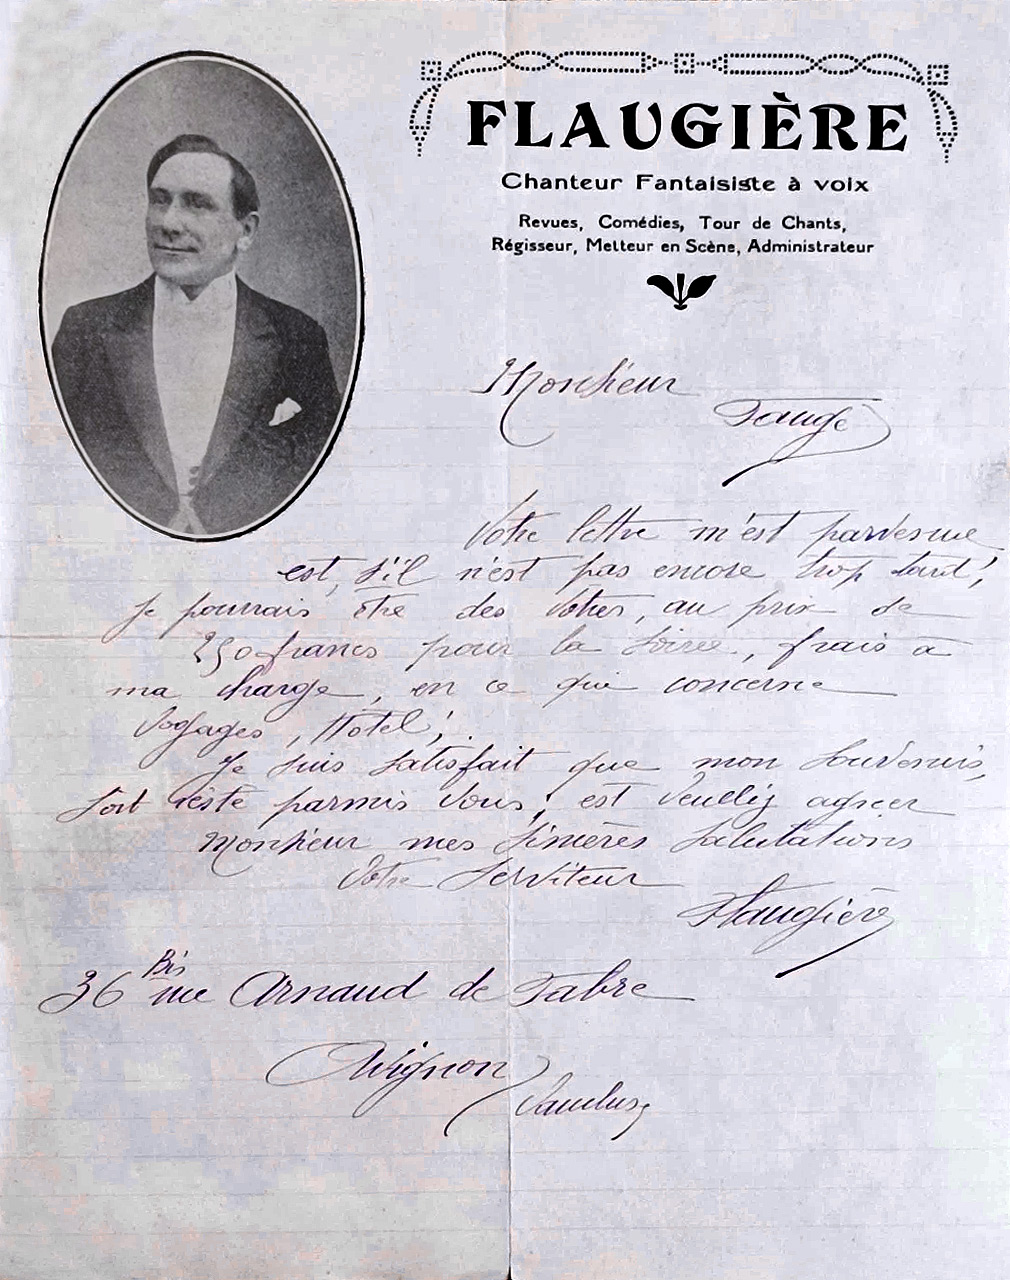 FLAUGIÈRE
Chanteur Fantaisiste à voix
Revues, Comédies, Tour de Chants,
Régisseur, Metteur en Scène, Administrateur
Monsieur
Votre lettre m'est parvenue
est, s'il n'est pas encore trop tard,
je pourrais être des vôtres, au prix de
250 francs pour la soirée, frais à
ma charge, en ce qui concerne
voyages, Hôtel,
Je suis satisfait que mon souvenirs,
soit resté parmis vous, est veuillez agréer
Monsieur mes sincères salutations
Votre Serviteur
Flaugière
36 Bis rue Arnaud de Fabre
Avignon
Vaucluse